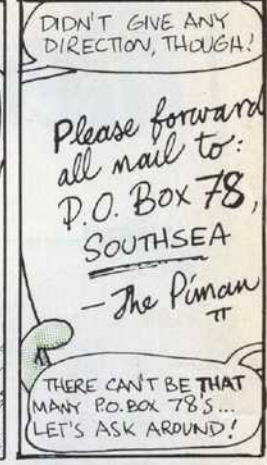 DIDN'T GIVE ANY
DIRECTION, THOUGH!
Please forward
all mail to:
P.O. Box 78,
SOUTHSEA
— The Piman
π
π
THERE CAN'T BE THAT
MANY P.O. BOX 78'S...
LET'S ASK AROUND!